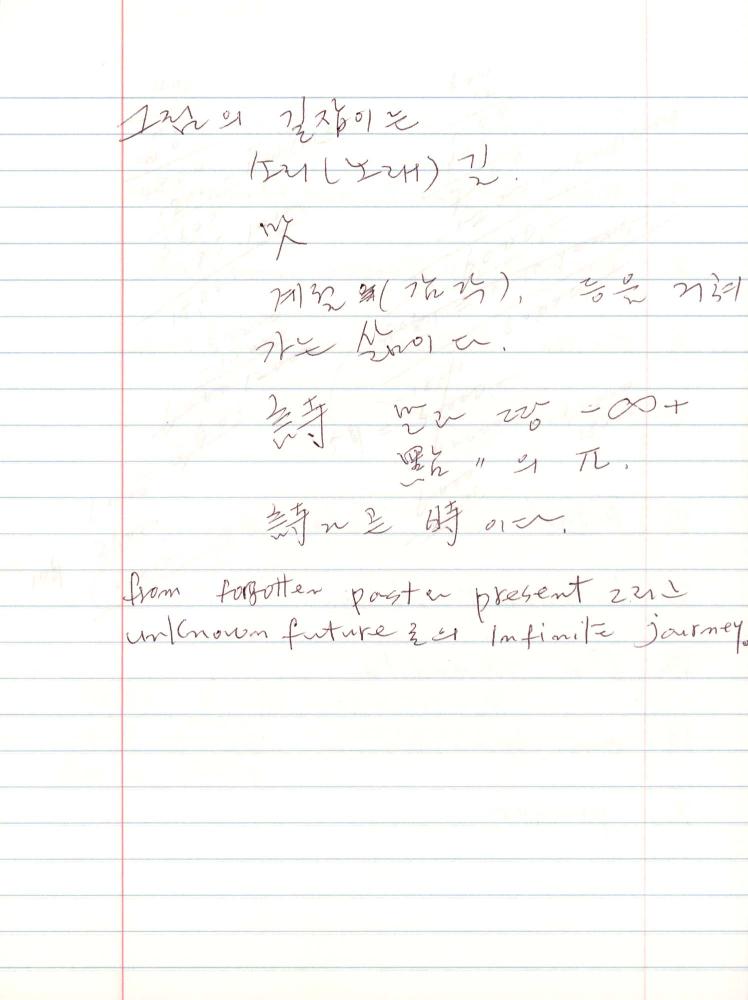 그점의 길잡이는
소리(노래) 길.
맛
계절 (감각), 등을 거쳐
가는 삶이다.
詩 땅 -∞+
點 〃 의 π.
詩라는 時이다.
from forgotten past present 그리고
unknown future로의 Infinite journey.